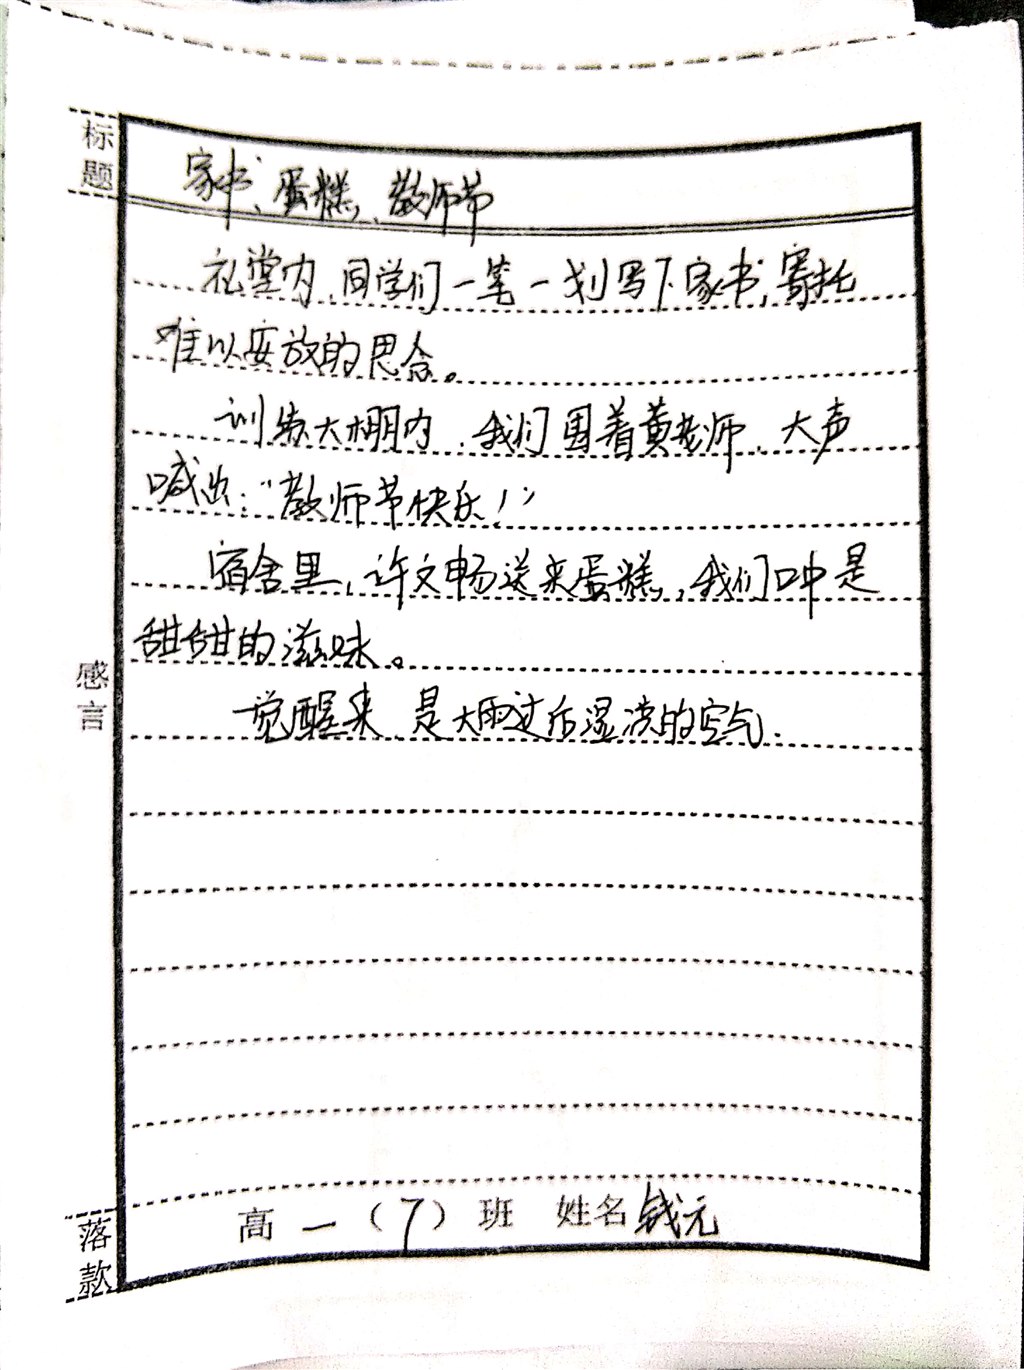 标题
家书、蛋糕、教师节
礼堂内,同学们一笔一划写下家书,寄托
难以安放的思念。
训练大棚内,我们围着黄老师,大声
喊出:“教师节快乐!”
宿舍里,许文畅送来蛋糕,我们口中是
甜甜的滋味。
一觉醒来,是大雨过后湿凉的空气.
感言
落款
高一(7)班 姓名 钱元